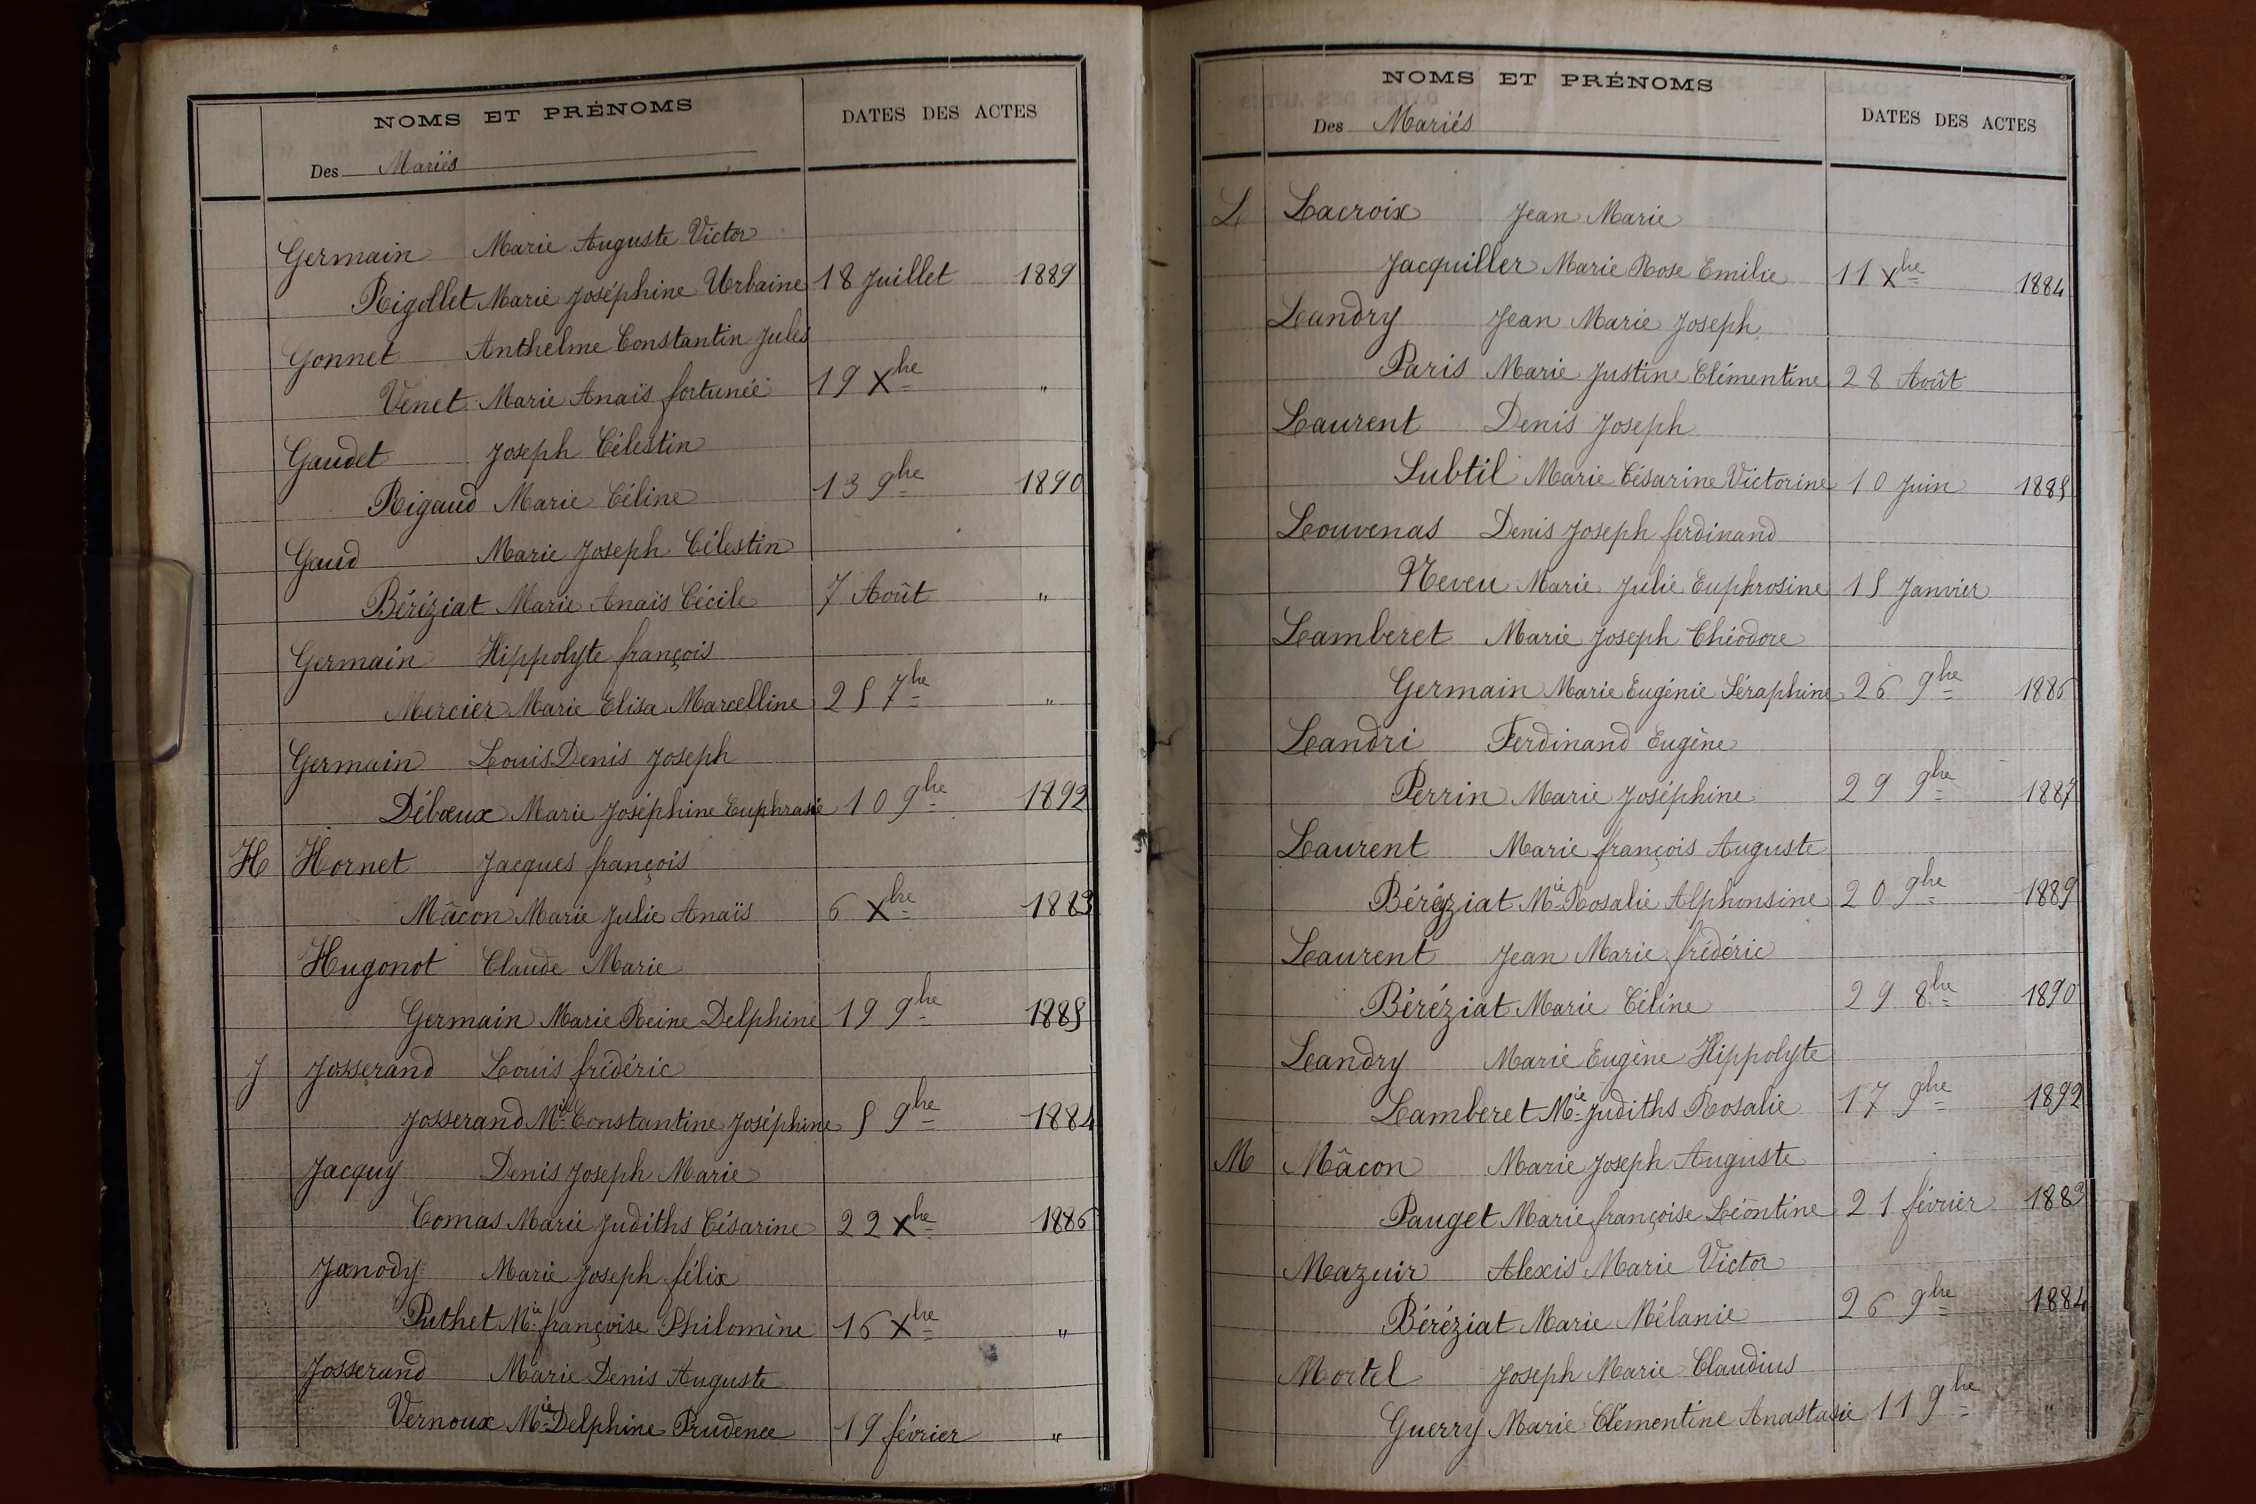 NOMS ET PRÉNOMS
Des Mariés
DATES DES ACTES
Germain Marie Auguste Victor
Rigollet Marie Joséphine Urbaine 18 Juillet 1889
Gonnet Anthelme Constantin Jules
Venet Marie Anaïs fortunée 19 Xbre "
Gaudet Joseph Célestin
Rigaud Marie Céline 13 9bre 1890
Gaud Marie Joseph Célestin
Béréziat Marie Anaïs Cécile 7 Août "
Germain Hippolyte françois
Mercier Marie Elisa Marcelline 25 7bre "
Germain Louis Denis Joseph
Débœux Marie Joséphine Euphrasie 10 9bre 1892
H Hornet Jacques françois
Mâcon Marie Julie Anaïs 6 Xbre 1883
Hugonot Claude Marie
Germain Marie Reine Delphine 19 9bre 1885
J Josserand Louis frédéric
Josserand Mie Constantine Joséphine 5 9bre 1884
Jacquy Denis Joseph Marie
Comas Marie Judiths Césarine 22 Xbre 1886
Janody Marie Joseph félix
Puthet Mie françoise Philomène 16 Xbre "
Josserand Marie Denis Auguste
Vernoux Mie Delphine Prudence 19 février "
NOMS ET PRÉNOMS
Des Mariés
DATES DES ACTES
L Lacroix Jean Marie
Jacquiller Marie Rose Emilie 11 Xbre 1884
Landry Jean Marie Joseph
Paris Marie Justine Clémentine 28 Août
Laurent Denis Joseph
Subtil Marie Césarine Victorine 10 Juin 1885
Louvenas Denis Joseph ferdinand
Neveu Marie Julie Euphrosine 15 Janvier
Lamberet Marie Joseph Théodore
Germain Marie Eugénie Séraphine 26 9bre 1886
Landri Ferdinand Eugène
Perrin Marie Joséphine 29 9bre 1887
Laurent Marie françois Auguste
Béréziat Mie Rosalie Alphonsine 20 9bre 1889
Laurent Jean Marie frédéric
Béréziat Marie Céline 29 8bre 1890
Landry Marie Eugène Hippolyte
Lamberet Mie Judiths Rosalie 17 9bre 1892
M Mâcon Marie Joseph Auguste
Pauget Marie françoise Léontine 21 février 1883
Mazuir Alexis Marie Victor
Béréziat Marie Mélanie 26 9bre 1884
Mortel Joseph Marie Claudius
Guerry Marie Clémentine Anastasie 11 9bre "